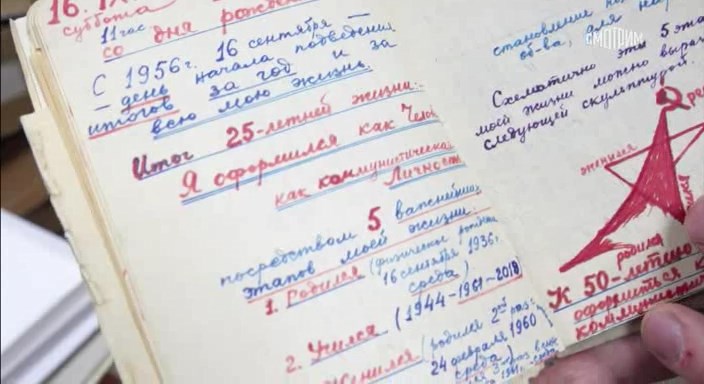 16.
суббота
11 час.
со дня рожден
С 1956 г. 16 сентября —
— день начала подведения
итогов за год и за
всю мою жизнь.
Итог 25-летней жизни:
Я оформился как Чело
как коммунистическа
Личность
посредством 5 важнейших
этапов моей жизни:
1. Родился (физическое рождение
16 сентября 1936 г.
среда)
2. Учился (1944-1961-2018)
Женился (родился 2ой раз:
24 февраля 1960
среда)
становление
об-ва, для на
Схематично эти 5 эта
моей жизни можно выра
следующей скульптурой.
женился
родился
К 50-летию
оформиться к
коммунисти
СМОТРИМ